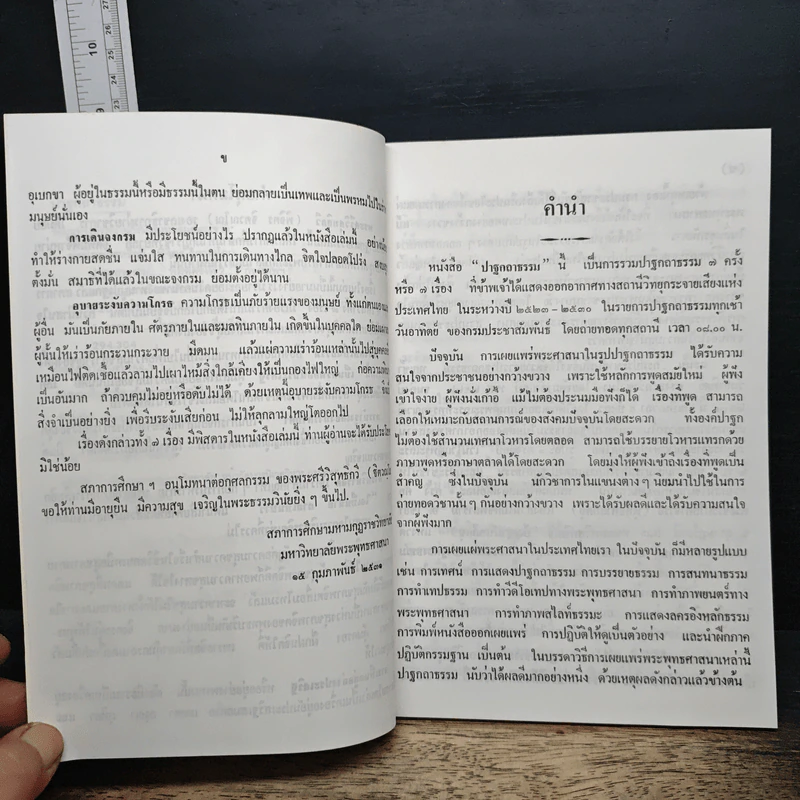 ข
อุเบกขา ผู้อยู่ในธรรมนี้หรือมีธรรมนี้ในตน ย่อมกลายเป็นเทพและเป็นพรหมไปในร่าง
มนุษย์นั่นเอง
การเดินจงกรม มีประโยชน์อย่างไร ปรากฏแล้วในหนังสือเล่มนี้
ทำให้ร่างกายสดชื่น แจ่มใส ทนทานในการเดินทางไกล จิตใจปลอดโปร่ง
ตั้งมั่น สมาธิที่ได้แล้วในขณะจงกรม ย่อมตั้งอยู่ได้นาน
อุบายระงับความโกรธ ความโกรธเป็นภัยร้ายแรงของมนุษย์ ทั้งแก่ตนเอง
ผู้อื่น มันเป็นภัยภายใน ศัตรูภายในและมลทินภายใน เกิดขึ้นในบุคคลใด ย่อม
ผู้นั้นให้เร่าร้อนกระวนกระวาย มืดมน แล้วแผ่ความเร่าร้อนเหล่านั้นไป
เหมือนไฟติดเชื้อแล้วลามไปเผาไหม้สิ่งใกล้เคียงให้เป็นกองไฟใหญ่ ก่อความ
เป็นอันมาก ถ้าควบคุมไม่อยู่หรือดับไม่ได้ ด้วยเหตุนี้อุบายระงับความโกรธ
สิ่งจำเป็นอย่างยิ่ง เพื่อรีบระงับเสียก่อน ไม่ให้ลุกลามใหญ่โตออกไป
เรื่องดังกล่าวทั้ง ๗ เรื่อง มีพิสดารในหนังสือเล่มนี้ ท่านผู้อ่านจะได้รับ
มิใช่น้อย
สภาการศึกษา ฯ อนุโมทนาต่อกุศลกรรม ของพระศรีวิสุทธิกวี
ขอให้ท่านมีอายุยืน มีความสุข เจริญในพระธรรมวินัยยิ่ง ๆ ขึ้นไป.
สภาการศึกษามหามกุฏราชวิทยาลัย
มหาวิทยาลัยพระพุทธศาสนา
๑๕ กุมภาพันธ์ ๒๕๓๑
คำนำ
หนังสือ “ปาฐกถาธรรม” นี้ เป็นการรวมปาฐกถาธรรม ๗ ครั้ง
หรือ ๗ เรื่อง ที่ข้าพเจ้าได้แสดงออกอากาศทางสถานีวิทยุกระจายเสียงแห่ง
ประเทศไทย ในระหว่างปี ๒๕๒๓ – ๒๕๓๐ ในรายการปาฐกถาธรรมทุกเช้า
วันอาทิตย์ ของกรมประชาสัมพันธ์ โดยถ่ายทอดทุกสถานี เวลา ๐๘.๐๐ น.
ปัจจุบัน การเผยแพร่พระศาสนาในรูปปาฐกถาธรรม ได้รับความ
สนใจจากประชาชนอย่างกว้างขวาง เพราะใช้หลักการพูดสมัยใหม่ ผู้ฟัง
เข้าใจง่าย ผู้ฟังนั่งเก้าอี้ แม้ไม่ต้องประนมมือฟังก็ได้ เรื่องที่พูด สามารถ
เลือกให้เหมาะกับสถานการณ์ของสังคมปัจจุบันโดยสะดวก ทั้งองค์ปาฐก
ไม่ต้องใช้สำนวนเทศนาโวหารโดยตลอด สามารถใช้บรรยายโวหารแทรกด้วย
ภาษาพูดหรือภาษาตลาดได้โดยสะดวก โดยมุ่งให้ผู้ฟังเข้าถึงเรื่องที่พูดเป็น
สำคัญ ซึ่งในปัจจุบัน นักวิชาการในแขนงต่าง ๆ นิยมนำไปใช้ในการ
ถ่ายทอดวิชานั้น ๆ กันอย่างกว้างขวาง เพราะได้รับผลดีและได้รับความสนใจ
จากผู้ฟังมาก
การเผยแผ่พระศาสนาในประเทศไทยเรา ในปัจจุบัน ก็มีหลายรูปแบบ
เช่น การเทศน์ การแสดงปาฐกถาธรรม การบรรยายธรรม การสนทนาธรรม
การทำเทปธรรม การทำวีดีโอเทปทางพระพุทธศาสนา การทำภาพยนตร์ทาง
พระพุทธศาสนา การทำภาพสไลท์ธรรมะ การแสดงละครอิงหลักธรรม
การพิมพ์หนังสือออกเผยแพร่ การปฏิบัติให้ดูเป็นตัวอย่าง และนำฝึกภาค
ปฏิบัติกรรมฐาน เป็นต้น ในบรรดาวิธีการเผยแพร่พระพุทธศาสนาเหล่านี้
ปาฐกถาธรรม นับว่าได้ผลดีมากอย่างหนึ่ง ด้วยเหตุผลดังกล่าวแล้วข้างต้น